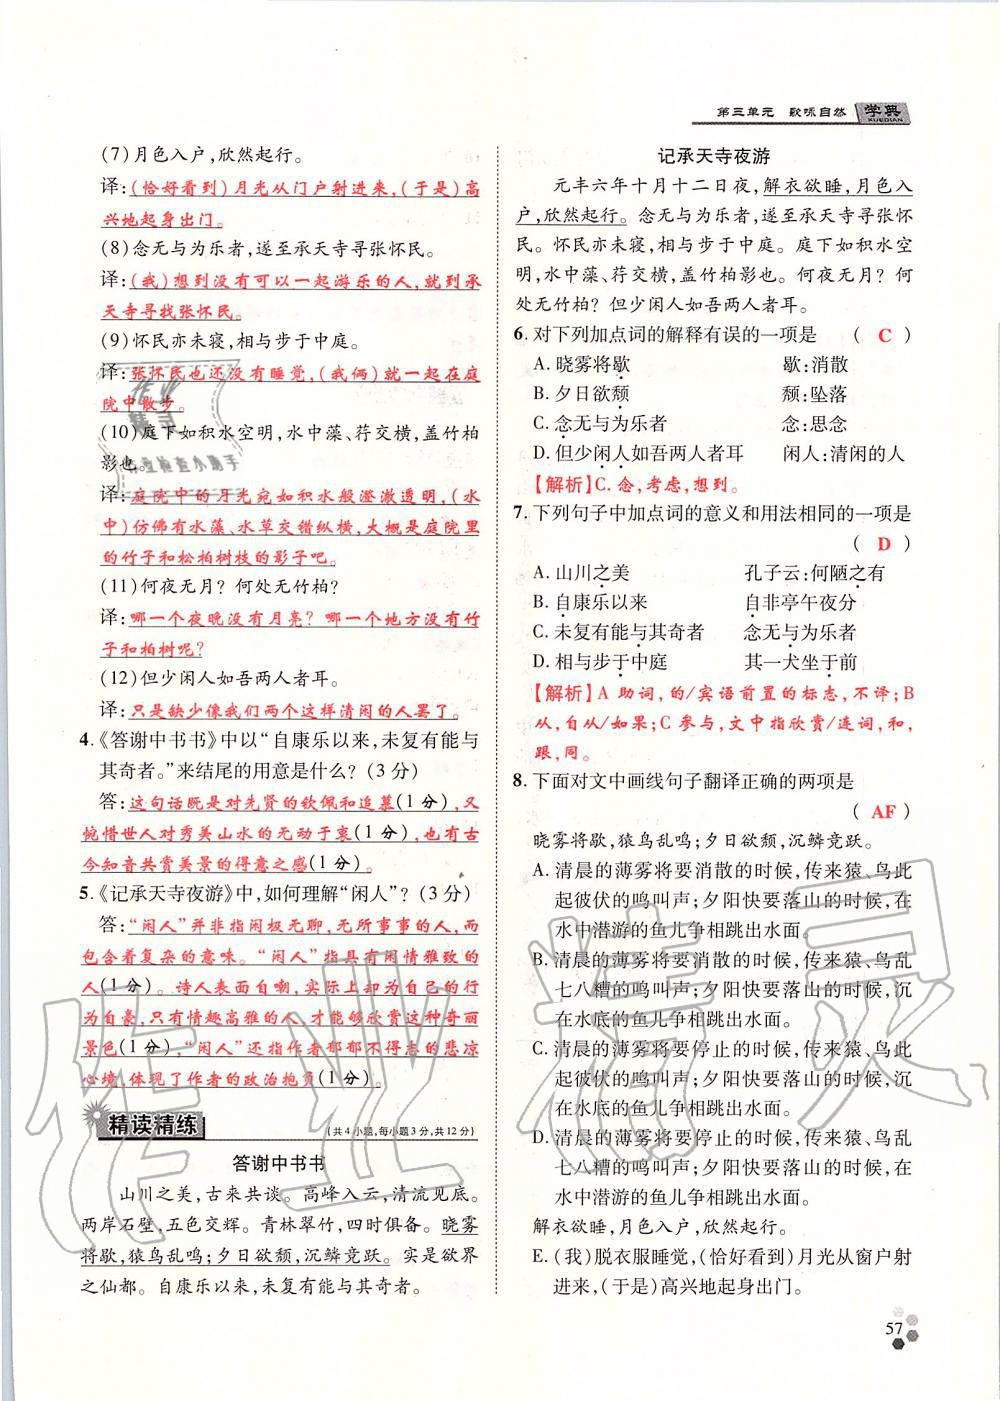 第三单元　歌咏自然　学典
XUEDIAN
(7)月色入户,欣然起行。
译:(恰好看到)月光从门户射进来,(于是)高
兴地起身出门。
(8)念无与为乐者,遂至承天寺寻张怀民。
译:(我)想到没有可以一起游乐的人,就到承
天寺寻找张怀民。
(9)怀民亦未寝,相与步于中庭。
译:张怀民也还没有睡觉,(我俩)就一起在庭
院中散步。
(10)庭下如积水空明,水中藻、荇交横,盖竹柏
影也。
译:庭院中的月光宛如积水般澄澈透明,(水
中)仿佛有水藻、水草交错纵横,大概是庭院里
的竹子和松柏树枝的影子吧。
(11)何夜无月？何处无竹柏？
译:哪一个夜晚没有月亮？哪一个地方没有竹
子和柏树呢？
(12)但少闲人如吾两人者耳。
译:只是缺少像我们两个这样清闲的人罢了。
4.《答谢中书书》中以“自康乐以来,未复有能与
其奇者。”来结尾的用意是什么？(3 分)
答:这句话既是对先贤的钦佩和追慕(1 分),又
惋惜世人对秀美山水的无动于衷(1 分),也有古
今知音共赏美景的得意之感(1 分)。
5.《记承天寺夜游》中,如何理解“闲人”？(3 分)
答:“闲人”并非指闲极无聊,无所事事的人,而
包含着复杂的意味。“闲人”指具有闲情雅致的
人(1 分)。诗人表面自嘲,实际上却为自己的行
为自豪,只有情趣高雅的人,才能够欣赏这种奇丽
景色(1 分),“闲人”还指作者郁郁不得志的悲凉
心境,体现了作者的政治抱负(1 分)。
精读精练
(共 4 小题,每小题 3 分,共 12 分)
答谢中书书
山川之美,古来共谈。高峰入云,清流见底。
两岸石壁,五色交辉。青林翠竹,四时俱备。晓雾
将歇,猿鸟乱鸣;夕日欲颓,沉鳞竞跃。实是欲界
之仙都。自康乐以来,未复有能与其奇者。
记承天寺夜游
元丰六年十月十二日夜,解衣欲睡,月色入
户,欣然起行。念无与为乐者,遂至承天寺寻张怀
民。怀民亦未寝,相与步于中庭。庭下如积水空
明,水中藻、荇交横,盖竹柏影也。何夜无月？何
处无竹柏？但少闲人如吾两人者耳。
6.对下列加点词的解释有误的一项是　( C )
A.晓雾将歇　歇:消散
B.夕日欲颓　颓:坠落
C.念无与为乐者　念:思念
D.但少闲人如吾两人者耳　闲人:清闲的人
【解析】C.念,考虑,想到。
7.下列句子中加点词的意义和用法相同的一项是
( D )
A.山川之美　孔子云:何陋之有
B.自康乐以来　自非亭午夜分
C.未复有能与其奇者　念无与为乐者
D.相与步于中庭　其一犬坐于前
【解析】A 助词,的/宾语前置的标志,不译;B
从,自从/如果;C 参与,文中指欣赏/连词,和,
跟,同。
8.下面对文中画线句子翻译正确的两项是
( AF )
晓雾将歇,猿鸟乱鸣;夕日欲颓,沉鳞竞跃。
A.清晨的薄雾将要消散的时候,传来猿、鸟此
起彼伏的鸣叫声;夕阳快要落山的时候,在
水中潜游的鱼儿争相跳出水面。
B.清晨的薄雾将要消散的时候,传来猿、鸟乱
七八糟的鸣叫声;夕阳快要落山的时候,沉
在水底的鱼儿争相跳出水面。
C.清晨的薄雾将要停止的时候,传来猿、鸟此
起彼伏的鸣叫声;夕阳快要落山的时候,沉
在水底的鱼儿争相跳出水面。
D.清晨的薄雾将要停止的时候,传来猿、鸟乱
七八糟的鸣叫声;夕阳快要落山的时候,在
水中潜游的鱼儿争相跳出水面。
解衣欲睡,月色入户,欣然起行。
E.(我)脱衣服睡觉,(恰好看到)月光从窗户射
进来,(于是)高兴地起身出门。
57
作业精灵